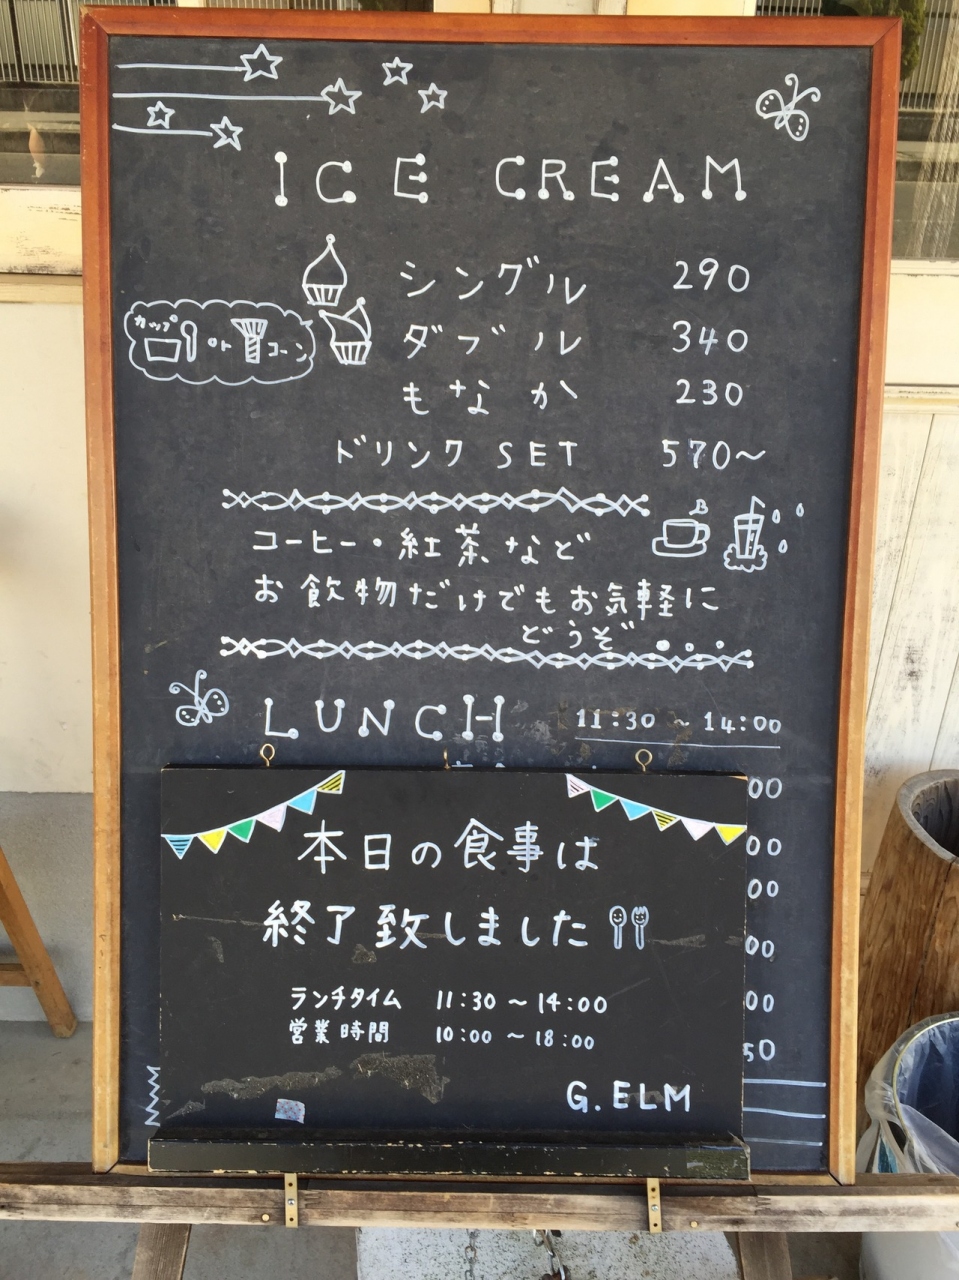 ICE CREAM
シングル 290
ダブル 340
カップ or コーン
もなか 230
ドリンク SET 570〜
コーヒー・紅茶など
お飲物だけでもお気軽に
どうぞ...
LUNCH 11:30 ~ 14:00
00
00
00
00
00
50
本日の食事は
終了致しました
ランチタイム 11:30 〜 14:00
営業時間 10:00 〜 18:00
G. ELM